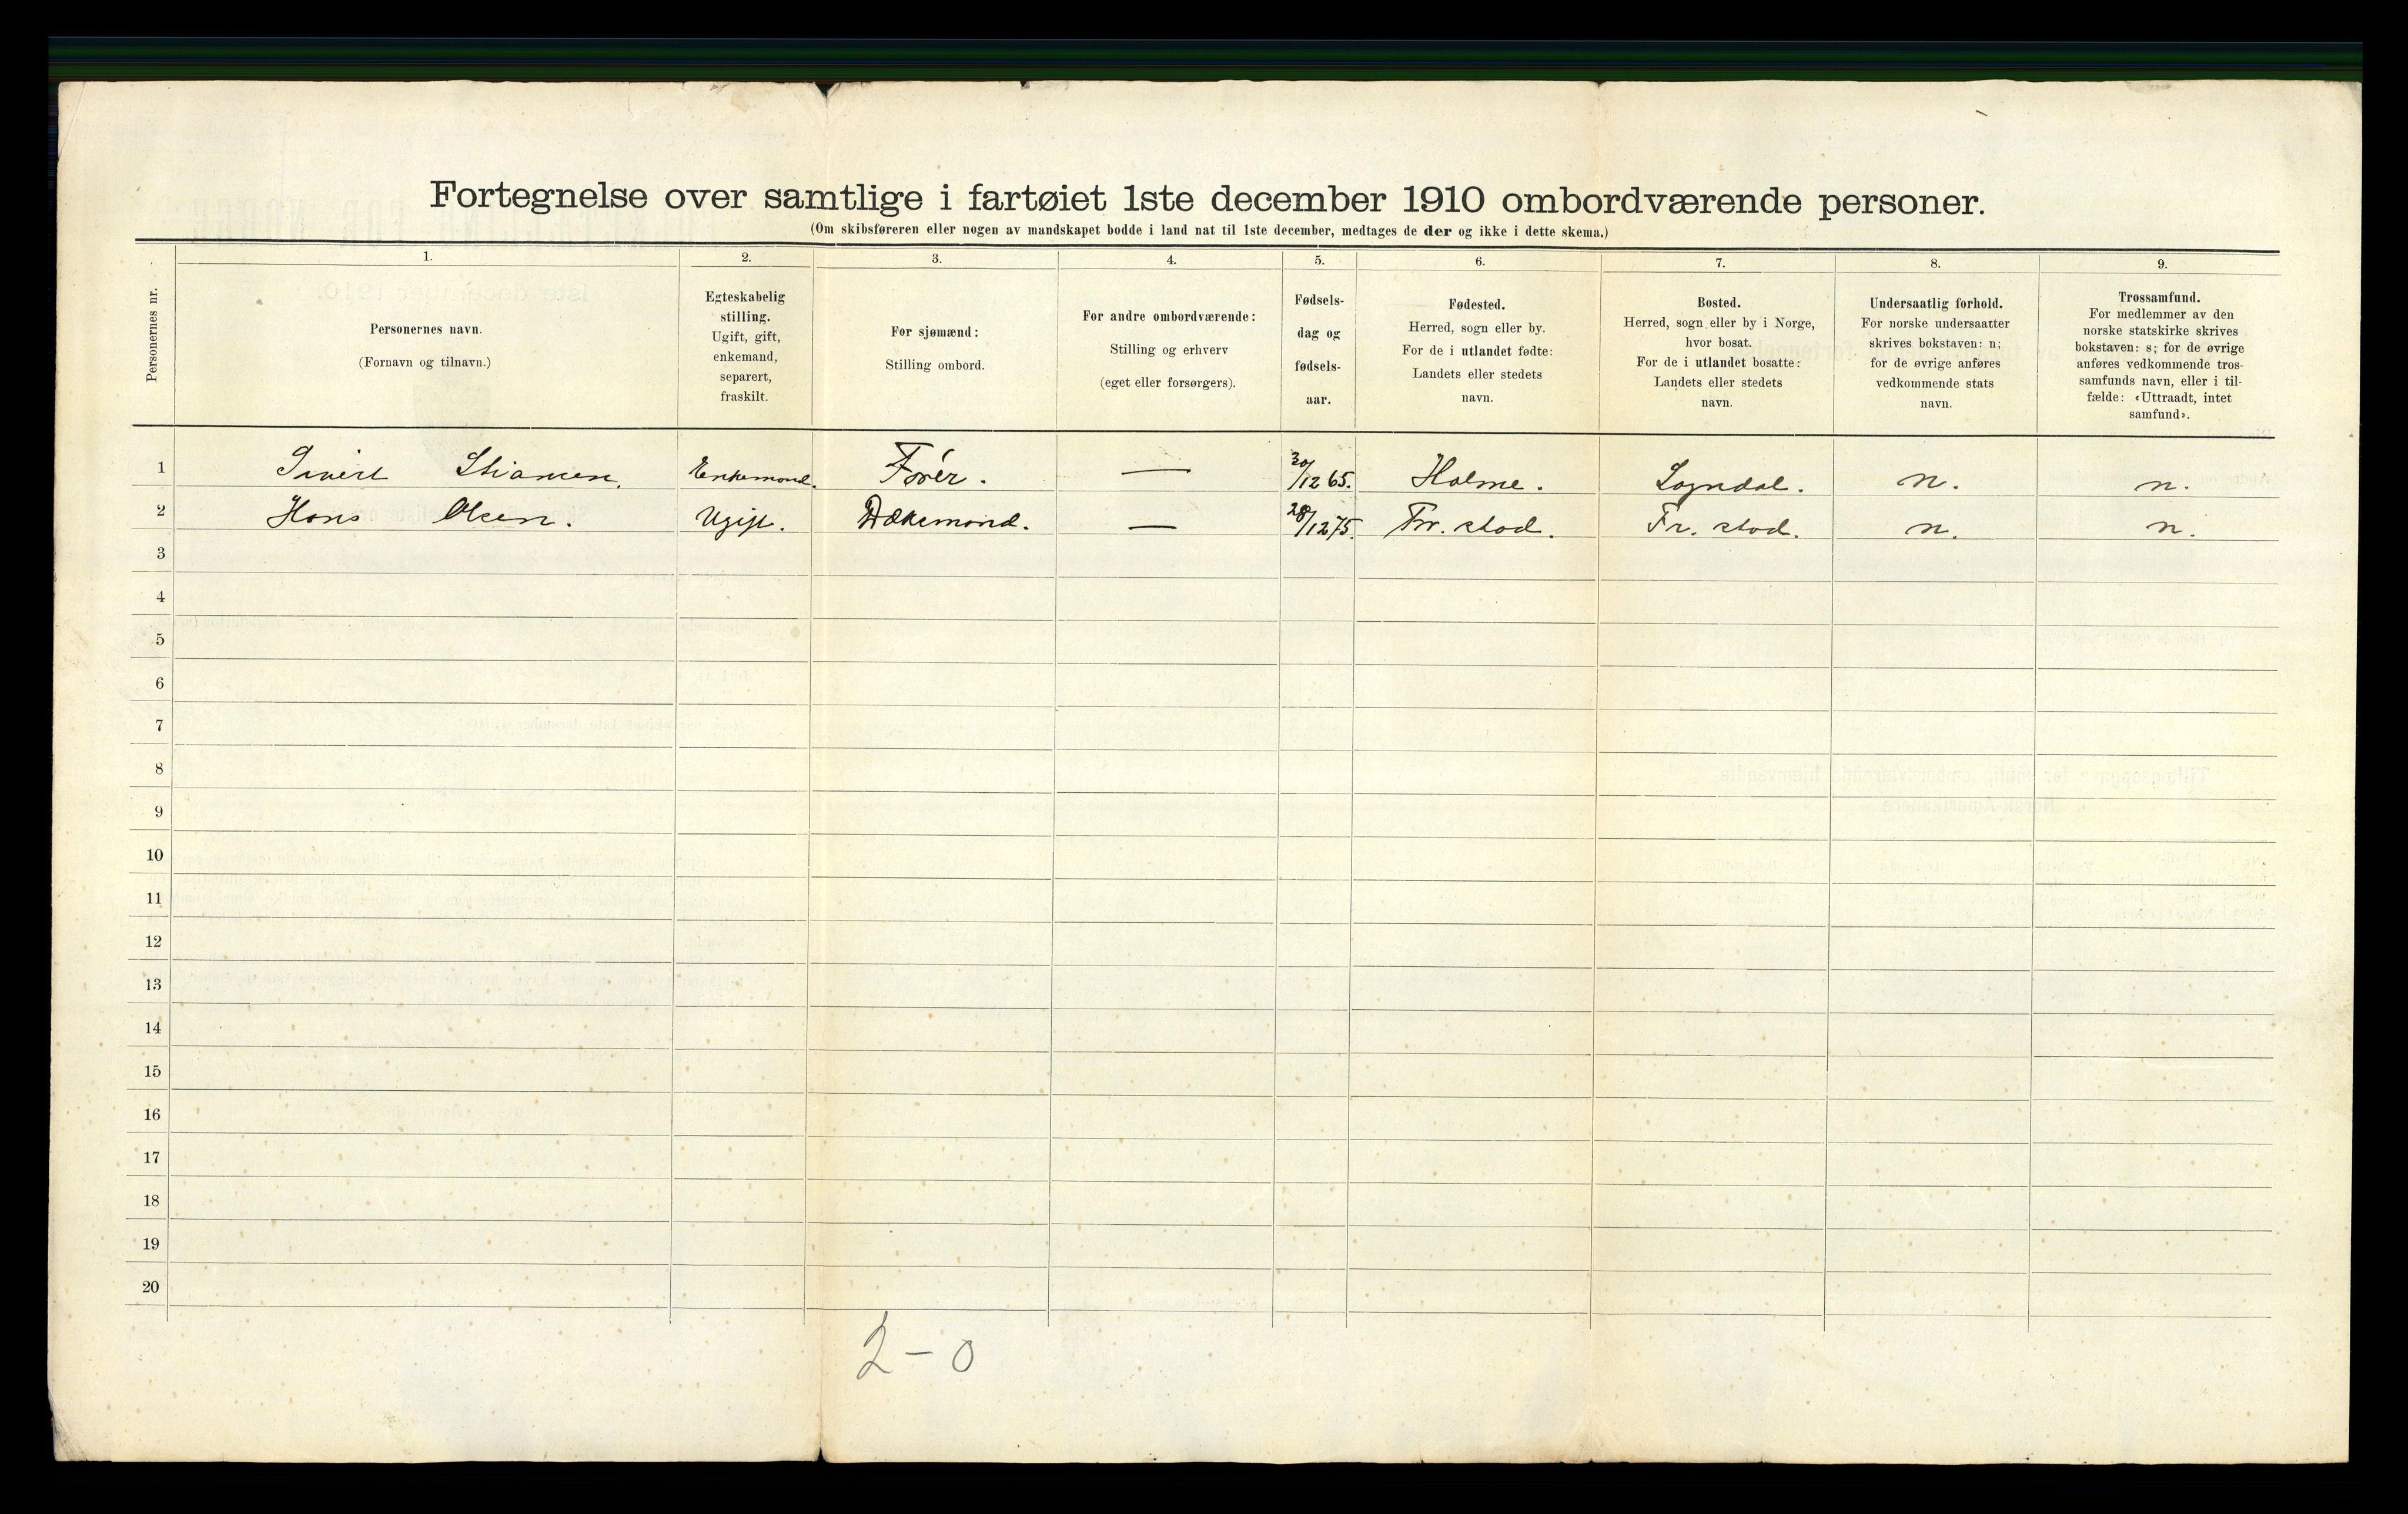 Fortegnelse over samtlige i fartøiet 1ste december 1910 ombordværende personer.
(Om skibsføreren eller nogen av mandskapet bodde i land nat til 1ste december, medtages de der og ikke i dette skema.)
Personernes nr.
1.
Personernes navn.
(Fornavn og tilnavn.)
2.
Egteskabelig
stilling.
Ugift, gift,
enkemand,
separert,
fraskilt.
3.
For sjømænd:
Stilling ombord.
4.
For andre ombordværende:
Stilling og erhverv
(eget eller forsørgers).
5.
Fødsels-
dag og
fødsels-
aar.
6.
Fødested.
Herred, sogn eller by.
For de i utlandet fødte:
Landets eller stedets
navn.
7.
Bosted.
Herred, sogn eller by i Norge,
hvor bosat.
For de i utlandet bosatte:
Landets eller stedets
navn.
8.
Undersaatlig forhold.
For norske undersaatter
skrives bokstaven: n;
for de øvrige anføres
vedkommende stats
navn.
9.
Trossamfund.
For medlemmer av den
norske statskirke skrives
bokstaven: s; for de øvrige
anføres vedkommende tros-
samfunds navn, eller i til-
fælde: «Uttraadt, intet
samfund».
1 Enkemand. Förer. — 30/12 65. Holme. Sogndal. n. n.
2 Hans Olsen. Ugift. Dæksmand. — 28/12 75. Fr. stad. Fr. stad. n. n.
3
4
5
6
7
8
9
10
11
12
13
14
15
16
17
18
19
20
2 - 0